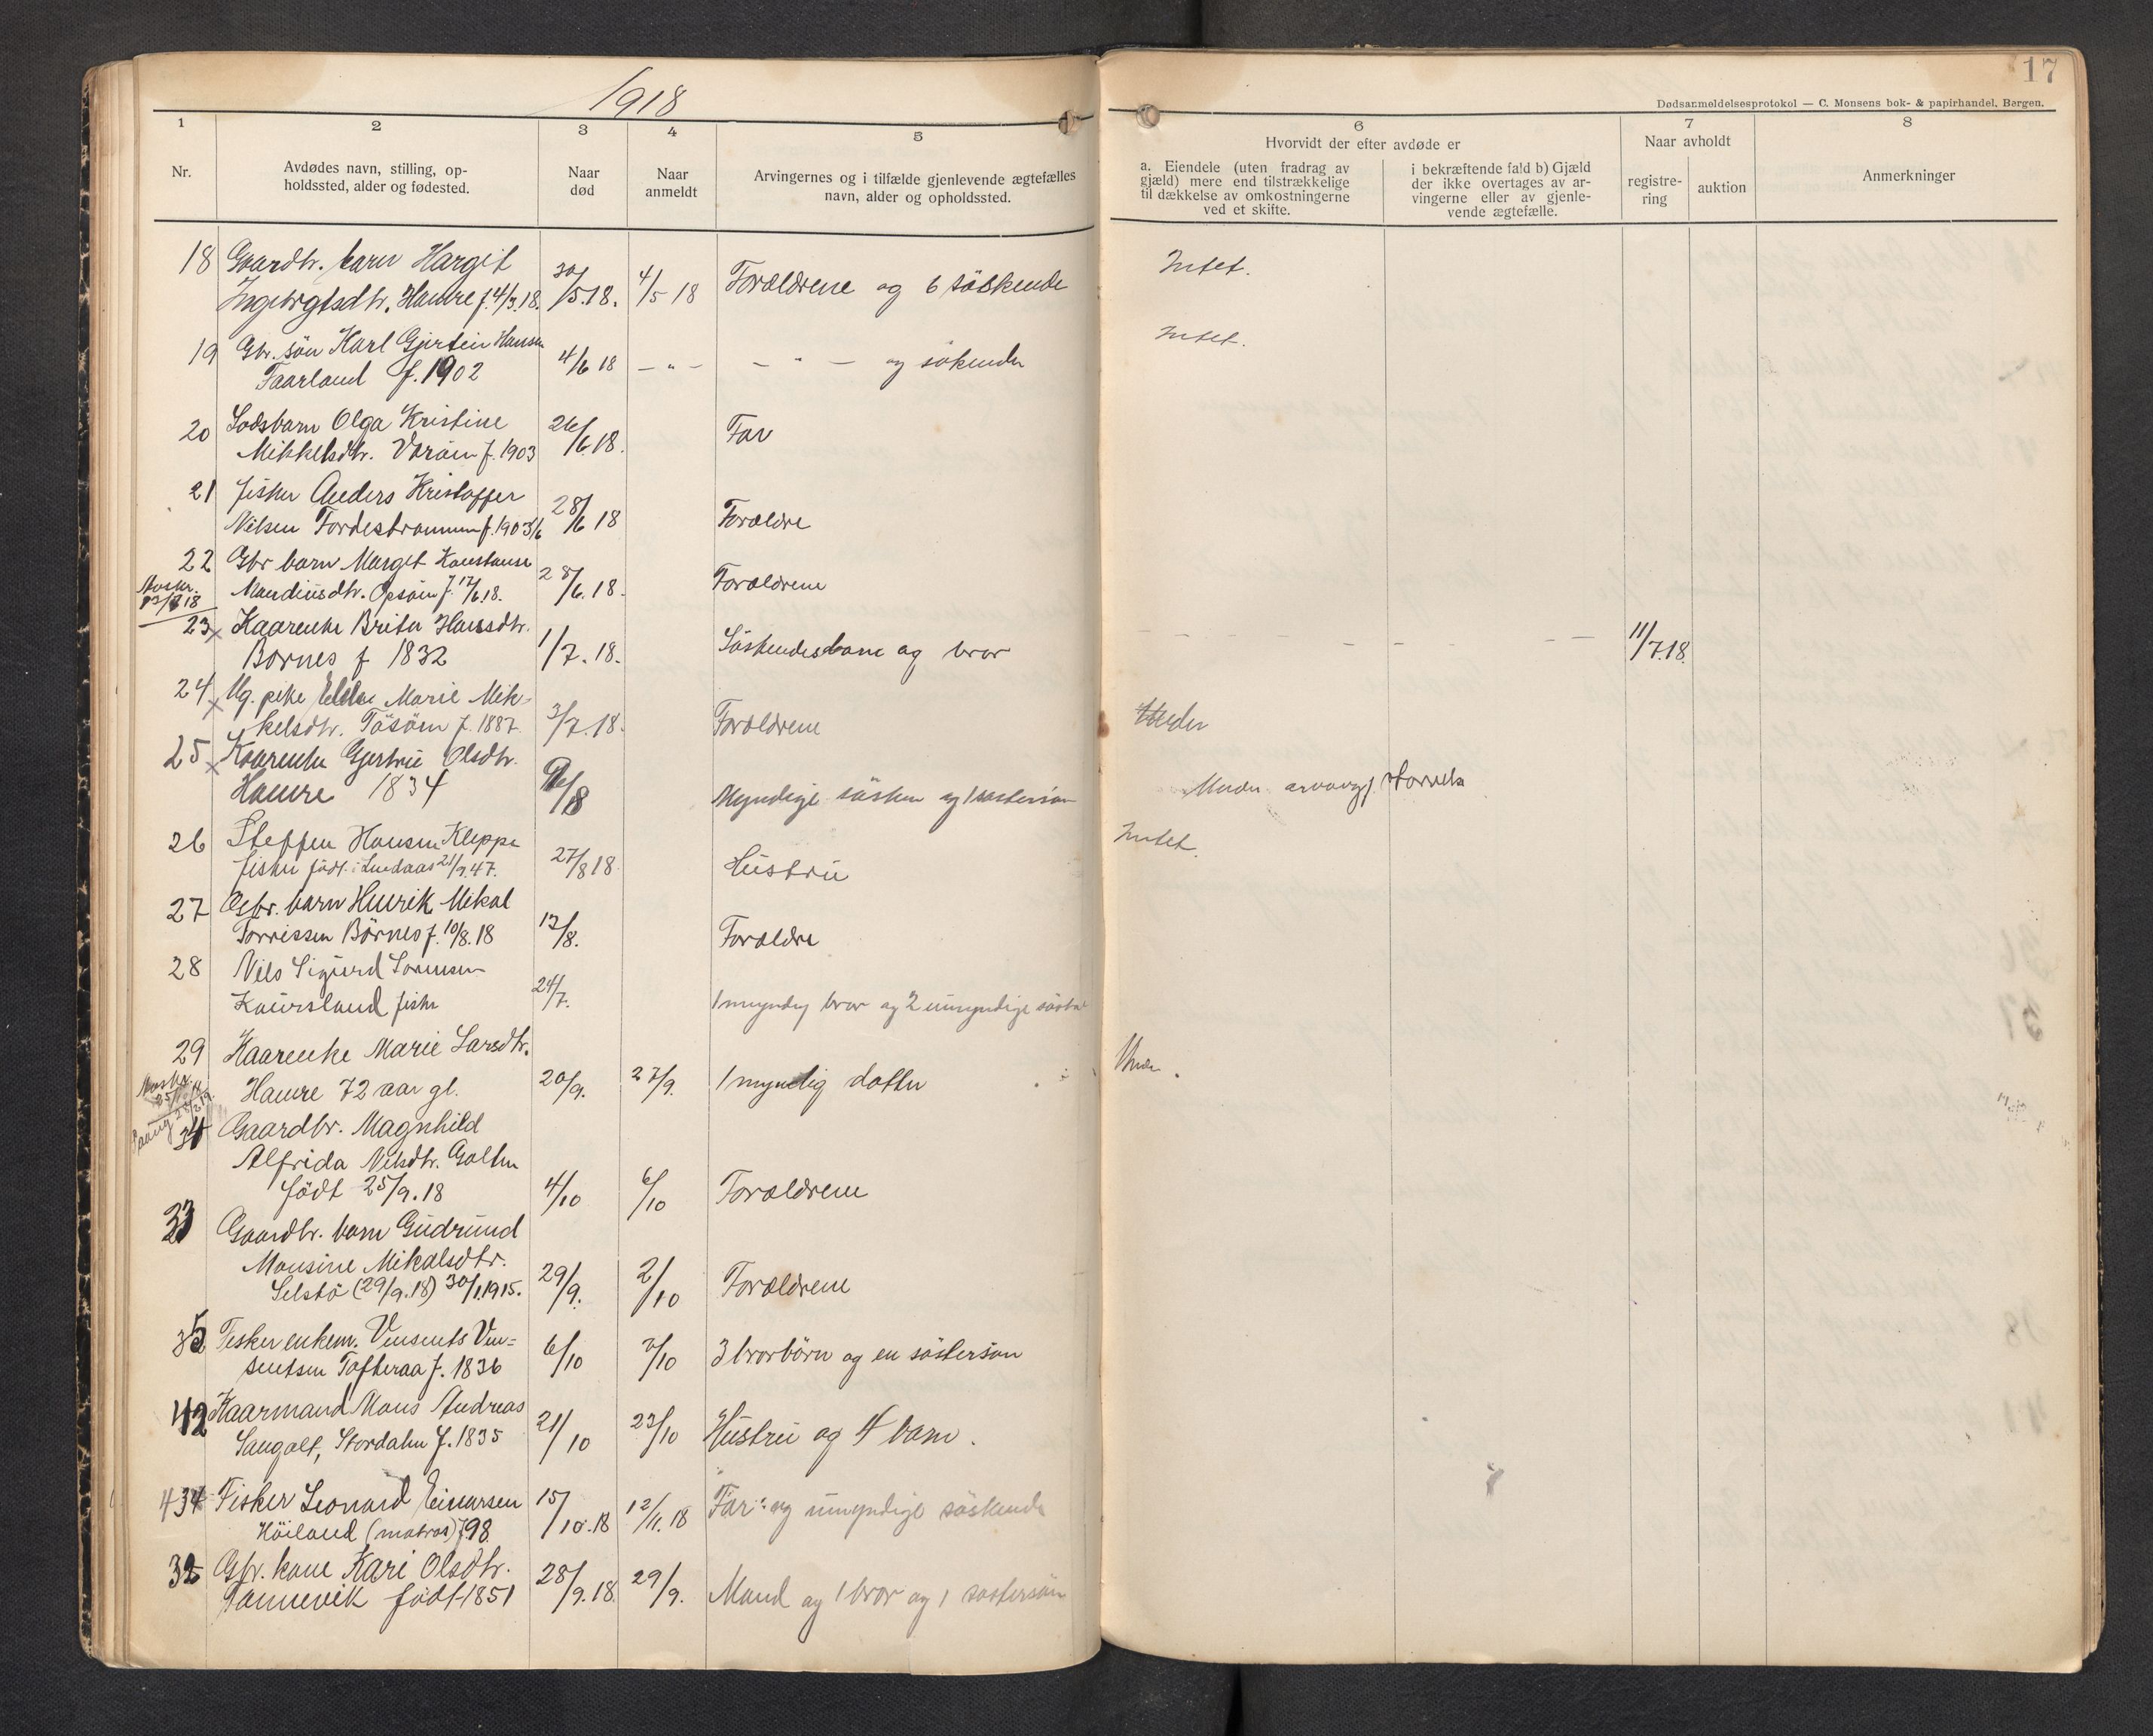 1918
17
Dødsanmeldelsesprotokol — C. Monsens bok- & papirhandel, Bergen.
1 2 3 4 5 6 7 8
Nr.
Avdødes navn, stilling, op-
holdssted, alder og fødested.
Naar
død
Naar
anmeldt
Arvingernes og i tilfælde gjenlevende ægtefælles
navn, alder og opholdssted.
Hvorvidt der efter avdøde er
a. Eiendele (uten fradrag av
gjæld) mere end tilstrækkelige
til dækkelse av omkostningerne
ved et skifte.
i bekræftende fald b) Gjæld
der ikke overtages av ar-
vingerne eller av gjenle-
vende ægtefælle.
Naar avholdt
registre-
ring
auktion
Anmerkninger
18 Gaardbr. barn Margit
Hamre f. 4/3.18. 30/5.18. 4/5 18 Forældrene og 6 søskende Intet.
19 Gbr. søn Karl Gjertin Hansen
Faarland f. 1902 4/6 18 — " — — " — og søkende Intet.
20 Lodsbarn Olga Kristine
Mikkelsdtr. f. 1903 26/6.18. Far
21 fisker Anders Kristoffer
Nilsen f. 1903 28/6 18 Forældre
22 Gbr barn Margit
f. 17/6.18. 28/6.18. Forældrene
23 x Kaarenke Brita Hansdtr.
Børnes f 1832 1/7.18. Søskendesbarn og bror 11/7.18.
24 x Ug. pike Marie Mik-
kelsdtr. f. 1887. 3/7.18. Forældrene
25 x Kaarenke Gjertrui Olsdtr.
Hamre 1834 Myndige søsken og 1 søstersøn
26 Steffen Hansen Kleppe
fisker født i Lindaas 47. 27/8 18 Hustru Intet.
27 Gbr. barn Henrik Mikal
Torrissen Børnes f. 10/8.18 13/8. Forældre
28 Nils Sigurd
fisker 24/7. 1 myndig bror og 2 umyndige
29 Kaarenke Marie Larsdtr.
Hamre 72 aar gl. 20/9. 27/9. 1 myndig datter
34 Gaardbr. Magnhild
Alfrida Nilsdtr. Golten
født 25/9.18 4/10 6/10 Forældrene
33 Gaardbr. barn Gudrund
Monsine Mikalsdtr.
Selstø (29/9.18) 30/1.1915. 29/9. 2/10 Forældrene
35 Fisker enkem. Vinsents Vin=
sentsen Tofteraa f. 1836 6/10 7/10 3 brorbørn og en søstersøn
42 Kaarmand Mons Andreas
Sangolt, Stordalen f. 1835 21/10 23/10 Hustru og 4 barn.
43 Fisker Leonard Einarsen
Høiland (matros) f 98 15/10.18 12/11.18 Far og umyndige søskende
32 Gbr. kone Kari Olsdtr.
født 1851 28/9.18. 29/9. Mand og 1 bror og 1 søstersøn